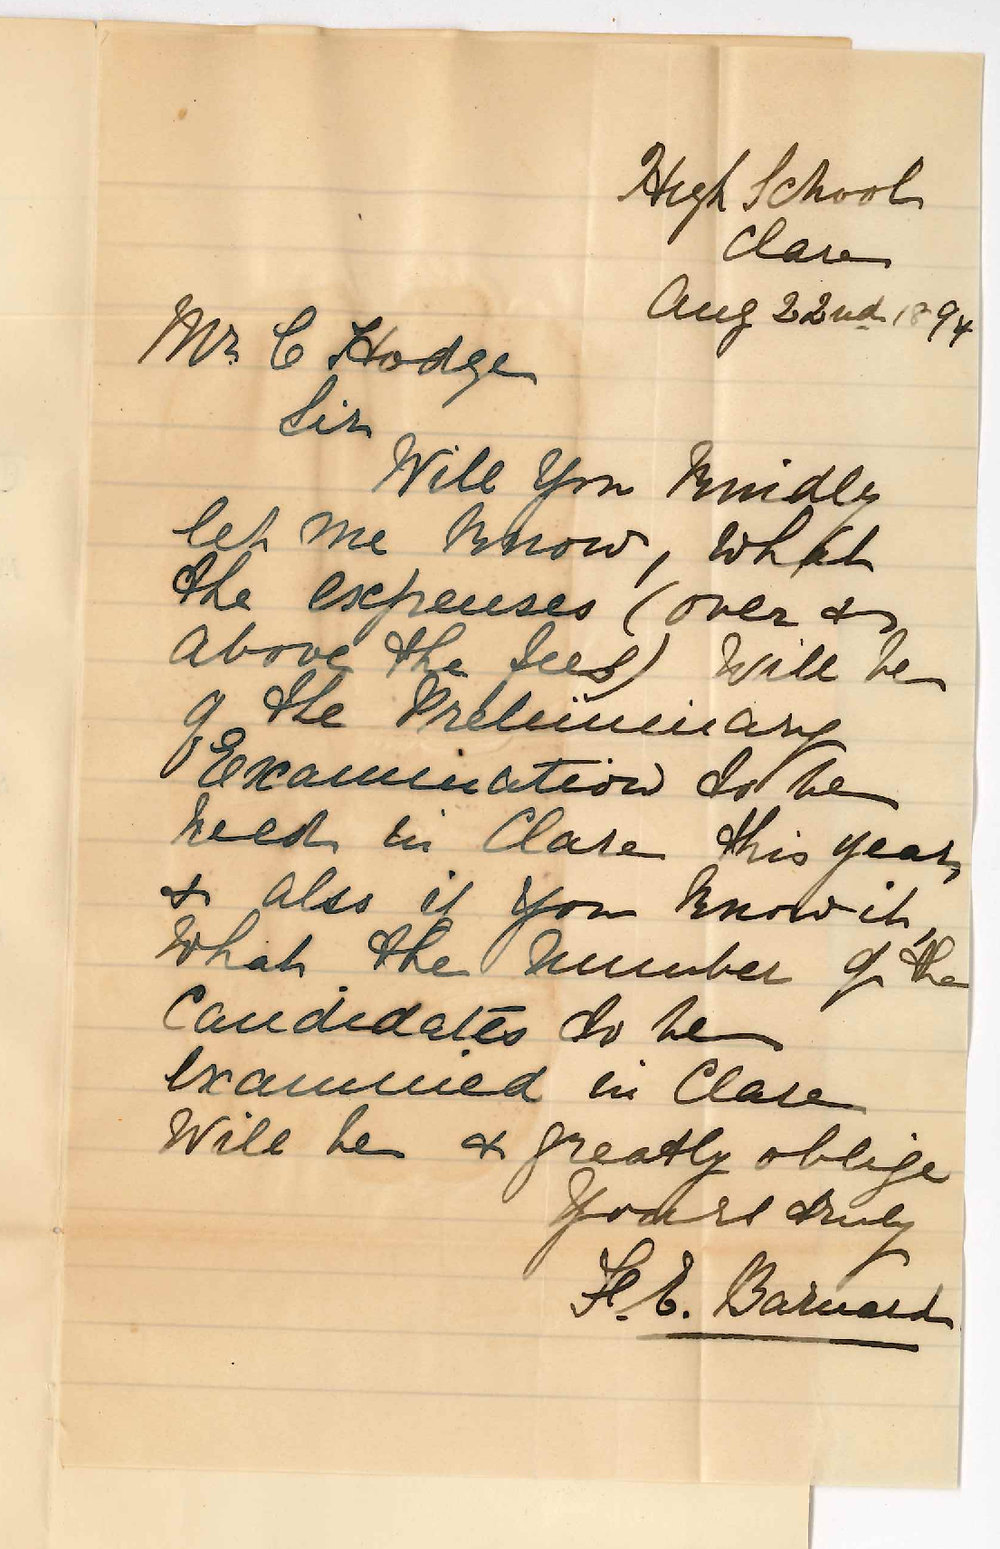 High School
Clare
Aug 22nd 1894
Mr. C Hodge
Sir
Will You Kindly
let me know, what
the expenses (over &
above the fees) will be
of the Preliminary
Examination to be
held in Clare this year,
& also if you know it,
what the number of the
Candidates to be
examined in Clare
will be & greatly oblige
Yours truly
E. Barnard